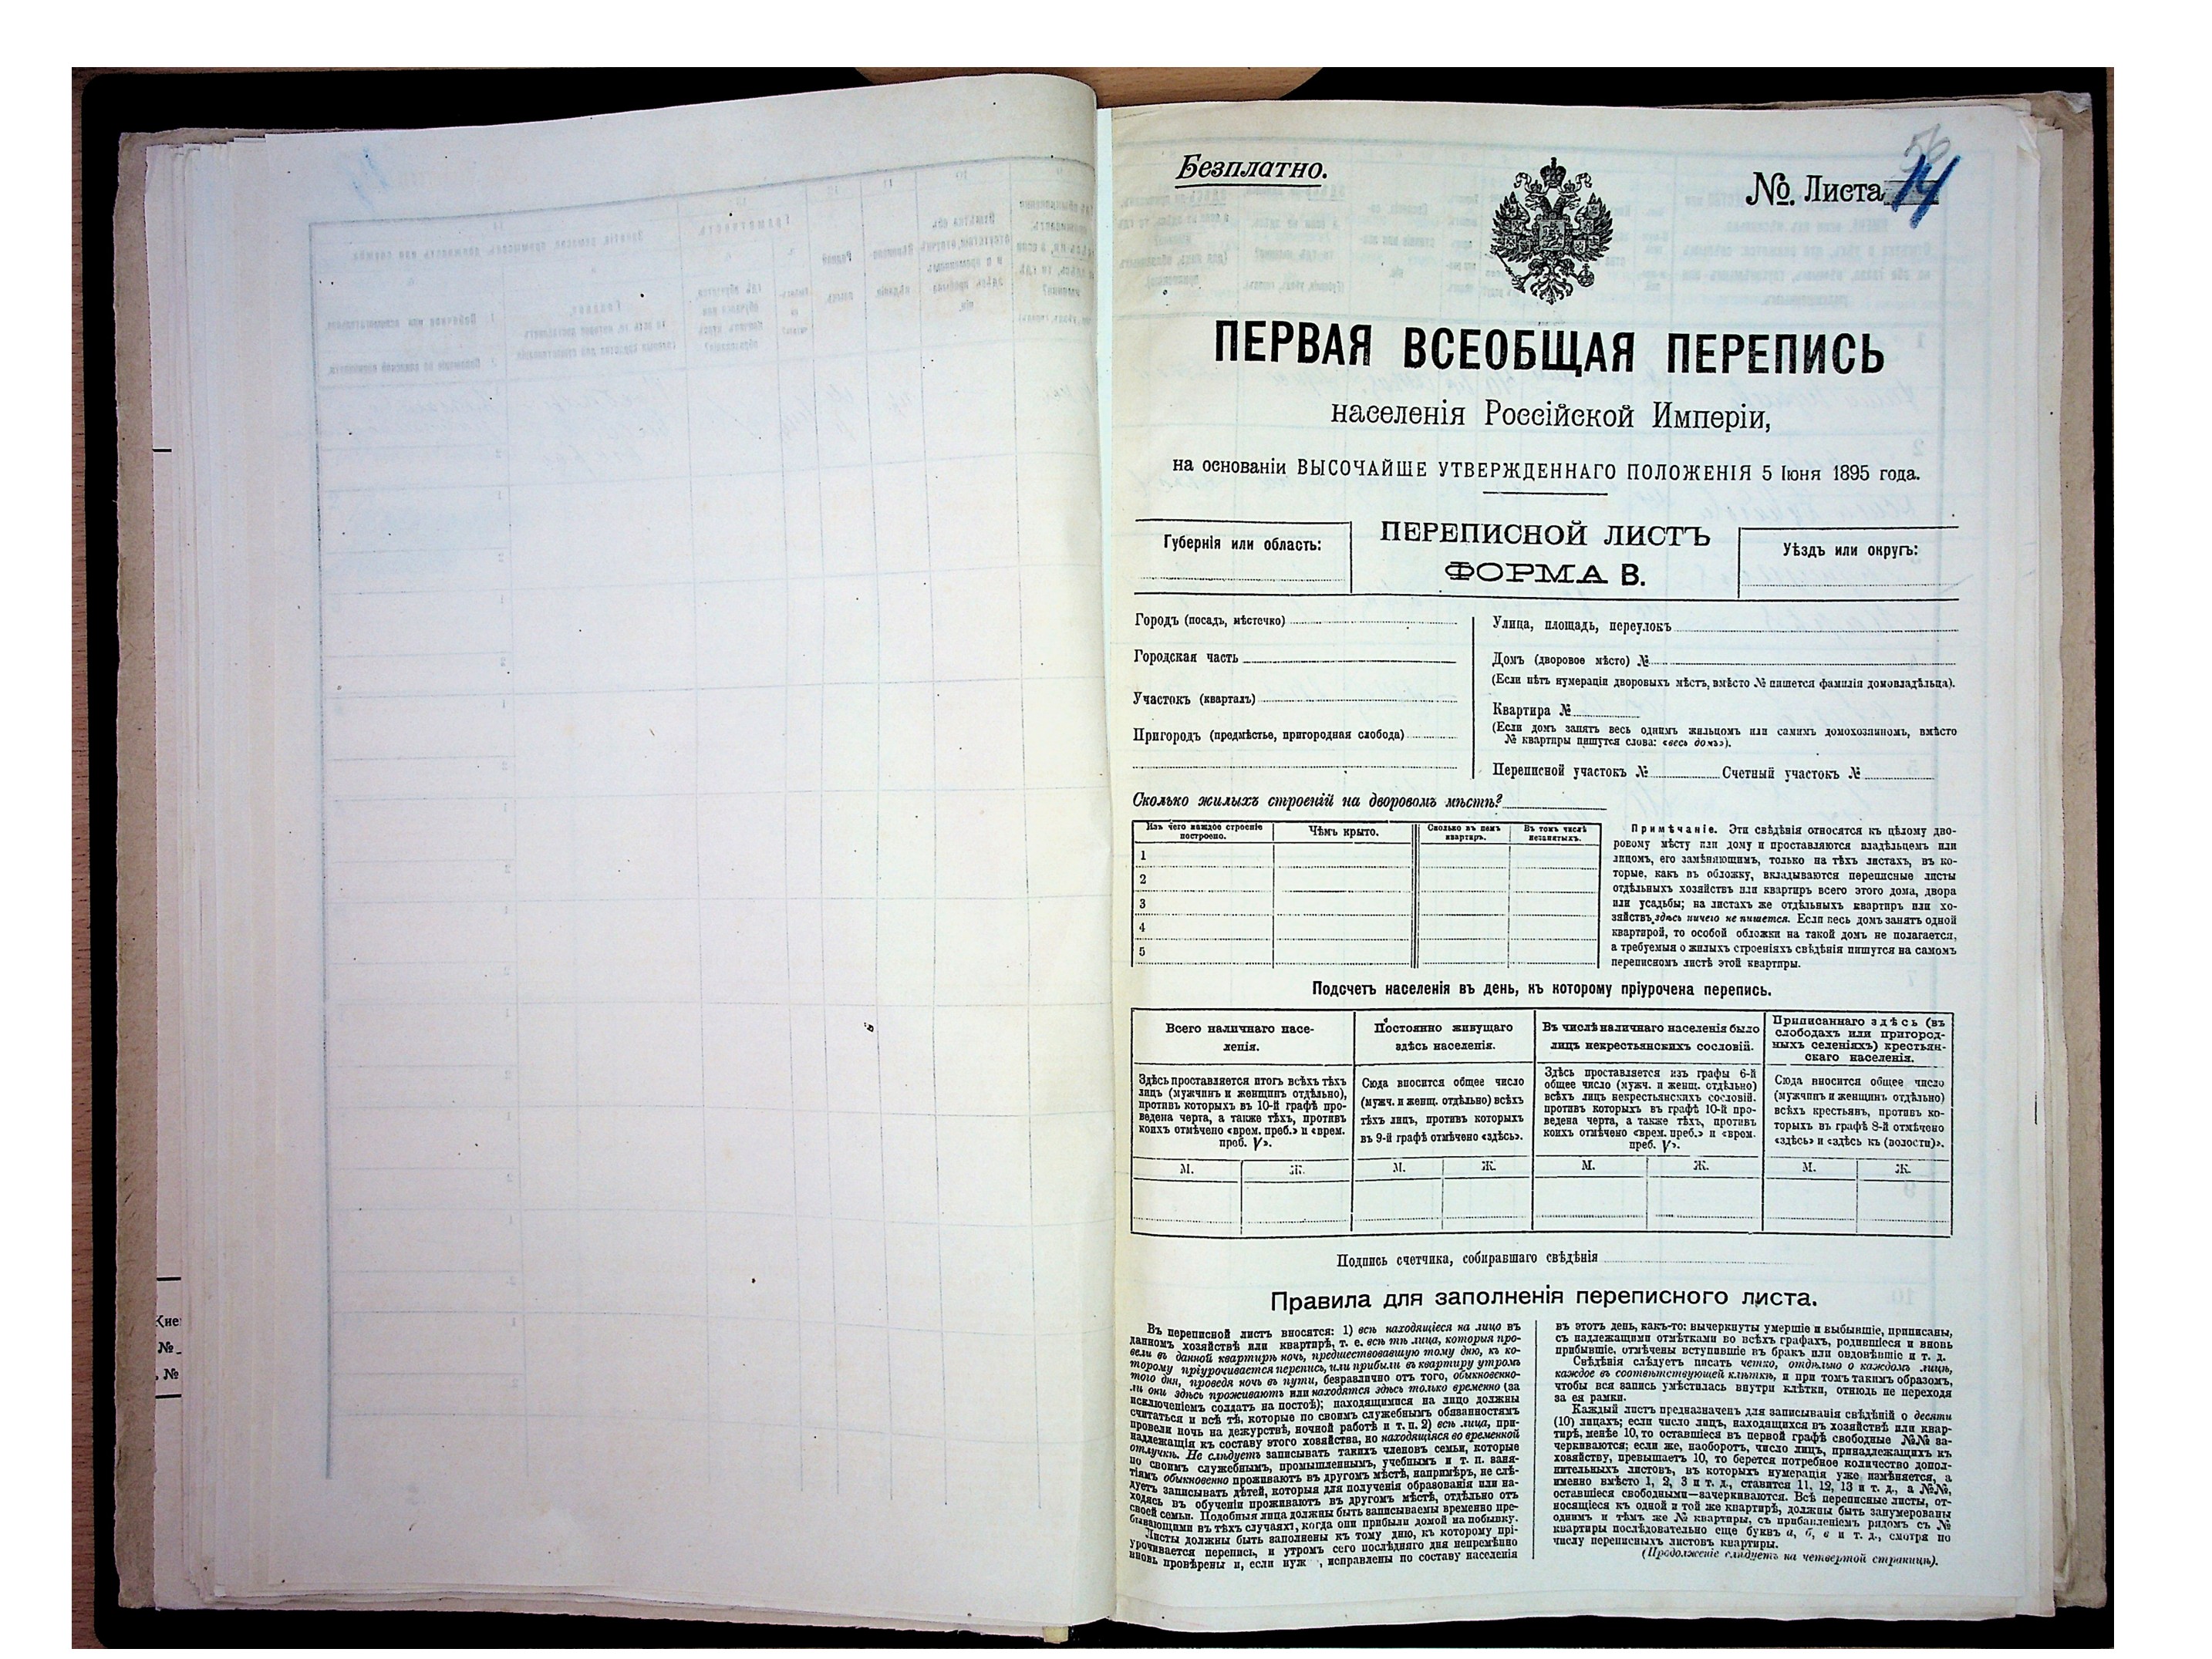 Кіе
№
№
56
Безплатно.
№. Листа 14
ПЕРВАЯ ВСЕОБЩАЯ ПЕРЕПИСЬ
населенія Россійской Имперіи,
на основаніи ВЫСОЧАЙШЕ УТВЕРЖДЕННАГО ПОЛОЖЕНІЯ 5 Іюня 1895 года.
Губернія или область:
ПЕРЕПИСНОЙ ЛИСТЪ
ФОРМА В.
Уѣздъ или округъ:
Городъ (посадъ, мѣстечко)
Городская часть
Участокъ (кварталъ)
Пригородъ (предмѣстье, пригородная слобода)
Улица, площадь, переулокъ
Домъ (дворовое мѣсто) №
(Если нѣтъ нумераціи дворовыхъ мѣстъ, вмѣсто № пишется фамилія домовладѣльца).
Квартира №
(Если домъ занятъ весь однимъ жильцомъ или самимъ домохозяиномъ, вмѣсто
№ квартиры пишутся слова: «весь домъ»).
Переписной участокъ № Счетный участокъ №
Сколько жилыхъ строеній на дворовомъ мѣстѣ?
Изъ чего каждое строеніе
построено.
Чѣмъ крыто.
Сколько въ немъ
квартиръ.
Въ томъ числѣ
незанятыхъ.
1
2
3
4
5
Примѣчаніе. Эти свѣдѣнія относятся къ цѣлому дво-
ровому мѣсту или дому и проставляются владѣльцемъ или
лицомъ, его замѣняющимъ, только на тѣхъ листахъ, въ ко-
торые, какъ въ обложку, вкладываются переписные листы
отдѣльныхъ хозяйствъ или квартиръ всего этого дома, двора
или усадьбы; на листахъ же отдѣльныхъ квартиръ или хо-
зяйствъ здѣсь ничего не пишется. Если весь домъ занятъ одной
квартирой, то особой обложки на такой домъ не полагается,
а требуемыя о жилыхъ строеніяхъ свѣдѣнія пишутся на самомъ
переписномъ листѣ этой квартиры.
Подсчетъ населенія въ день, къ которому пріурочена перепись.
Всего наличнаго насе-
ленія.
Постоянно живущаго
здѣсь населенія.
Въ числѣ наличнаго населенія было
лицъ некрестьянскихъ сословій.
Приписаннаго здѣсь (въ
слободахъ или пригород-
ныхъ селеніяхъ) крестьян-
скаго населенія.
Здѣсь проставляется итогъ всѣхъ тѣхъ
лицъ (мужчинъ и женщинъ отдѣльно),
противъ которыхъ въ 10-й графѣ про-
ведена черта, а также тѣхъ, противъ
коихъ отмѣчено «врем. преб.» и «врем.
преб. V».
Сюда вносится общее число
(мужч. и женщ. отдѣльно) всѣхъ
тѣхъ лицъ, противъ которыхъ
въ 9-й графѣ отмѣчено «здѣсь».
Здѣсь проставляется изъ графы 6-й
общее число (мужч. и женщ. отдѣльно)
всѣхъ лицъ некрестьянскихъ сословій.
противъ которыхъ въ графѣ 10-й про-
ведена черта, а также тѣхъ, противъ
коихъ отмѣчено «врем. преб.» и «врем.
преб. V».
Сюда вносится общее число
(мужчинъ и женщинъ отдѣльно)
всѣхъ крестьянъ, противъ ко-
торыхъ въ графѣ 8-й отмѣчено
«здѣсь» и «здѣсь къ (волости)».
М. Ж. М. Ж. М. Ж. М. Ж.
Подпись счетчика, собиравшаго свѣдѣнія
Правила для заполненія переписного листа.
Въ переписной листъ вносятся: 1) всѣ находящіеся на лицо въ
данномъ хозяйствѣ или квартирѣ, т. е. всѣ тѣ лица, которыя про-
вели въ данной квартирѣ ночь, предшествовавшую тому дню, къ ко-
торому пріурочивается перепись, или прибыли въ квартиру утромъ
того дня, проведя ночь въ пути, безразлично отъ того, обыкновенно-
ли они здѣсь проживаютъ или находятся здѣсь только временно (за
исключеніемъ солдатъ на постоѣ); находящимися на лицо должны
считаться и всѣ тѣ, которые по своимъ служебнымъ обязанностямъ
провели ночь на дежурствѣ, ночной работѣ и т. п. 2) всѣ лица, при-
надлежащія къ составу этого хозяйства, но находящіяся во временной
отлучкѣ. Не слѣдуетъ записывать такихъ членовъ семьи, которые
по своимъ служебнымъ, промышленнымъ, учебнымъ и т. п. заня-
тіямъ обыкновенно проживаютъ въ другомъ мѣстѣ, напримѣръ, не слѣ-
дуетъ записывать дѣтей, которыя для полученія образованія или на-
ходясь въ обученіи проживаютъ въ другомъ мѣстѣ, отдѣльно отъ
своей семьи. Подобныя лица должны быть записываемы временно пре-
бывающими въ тѣхъ случаяхъ, когда они прибыли домой на побывку.
Листы должны быть заполнены къ тому дню, къ которому прі-
урочивается перепись, и утромъ сего послѣдняго дня непремѣнно
вновь провѣрены и, если нуж , исправлены по составу населенія
въ этотъ день, какъ-то: вычеркнуты умершіе и выбывшіе, приписаны,
съ надлежащими отмѣтками во всѣхъ графахъ, родившіеся и вновь
прибывшіе, отмѣчены вступившіе въ бракъ или овдовѣвшіе и т. д.
Свѣдѣнія слѣдуетъ писать четко, отдѣльно о каждомъ лицѣ,
каждое въ соотвѣтствующей клѣткѣ, и при томъ такимъ образомъ,
чтобы вся запись умѣстилась внутри клѣтки, отнюдь не переходя
за ея рамки.
Каждый листъ предназначенъ для записыванія свѣдѣній о десяти
(10) лицахъ; если число лицъ, находящихся въ хозяйствѣ или квар-
тирѣ, менѣе 10, то оставшіеся въ первой графѣ свободные №№ за-
черкиваются; если же, наоборотъ, число лицъ, принадлежащихъ къ
хозяйству, превышаетъ 10, то берется потребное количество допол-
нительныхъ листовъ, въ которыхъ нумерація уже измѣняется, а
именно вмѣсто 1, 2, 3 и т. д., ставится 11, 12, 13 и т. д., а №№,
оставшіеся свободными—зачеркиваются. Всѣ переписные листы, от-
носящіеся къ одной и той же квартирѣ, должны быть занумерованы
однимъ и тѣмъ же № квартиры, съ прибавленіемъ рядомъ съ №
квартиры послѣдовательно еще буквъ а, б, в и т. д., смотря по
числу переписныхъ листовъ квартиры.
(Продолженіе слѣдуетъ на четвертой страницѣ).